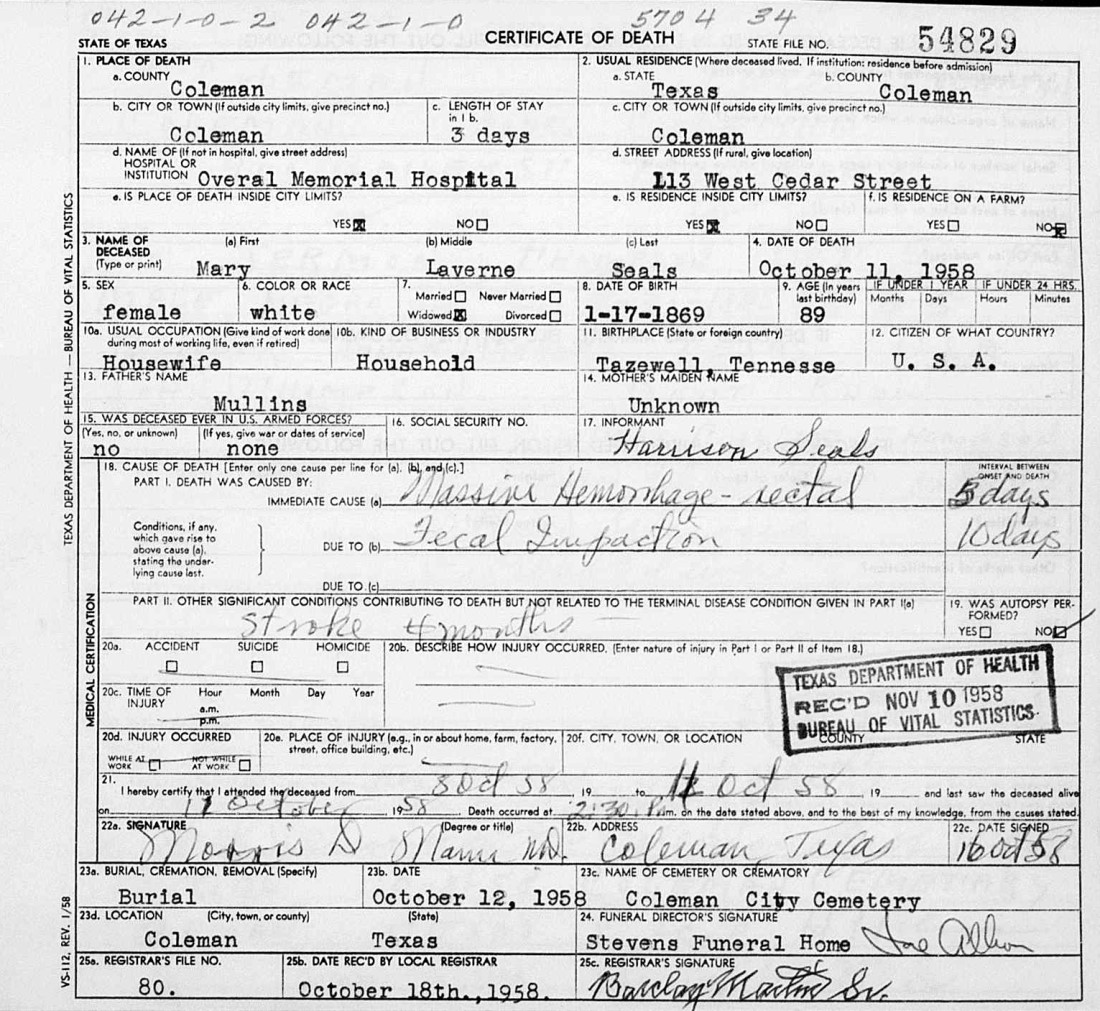 042-1-0-2 042-1-0 5704 34
STATE OF TEXAS CERTIFICATE OF DEATH STATE FILE NO. 54829
1. PLACE OF DEATH
a. COUNTY
Coleman
2. USUAL RESIDENCE (Where deceased lived. If institution: residence before admission)
a. STATE b. COUNTY
Texas Coleman
b. CITY OR TOWN (If outside city limits, give precinct no.)
Coleman
c. LENGTH OF STAY
in 1 b.
3 days
c. CITY OR TOWN (If outside city limits, give precinct no.)
Coleman
d. NAME OF (If not in hospital, give street address)
HOSPITAL OR
INSTITUTION Overal Memorial Hospital
d. STREET ADDRESS (If rural, give location)
113 West Cedar Street
e. IS PLACE OF DEATH INSIDE CITY LIMITS?
YES NO
e. IS RESIDENCE INSIDE CITY LIMITS?
YES NO
f. IS RESIDENCE ON A FARM?
YES NO
3. NAME OF
DECEASED
(Type or print)
(a) First (b) Middle (c) Last
Mary Laverne Seals
4. DATE OF DEATH
October 11, 1958
5. SEX
female
6. COLOR OR RACE
white
7.
Married Never Married
Widowed Divorced
8. DATE OF BIRTH
1-17-1869
9. AGE (In years
last birthday)
89
IF UNDER 1 YEAR IF UNDER 24 HRS.
Months Days Hours Minutes
10a. USUAL OCCUPATION (Give kind of work done
during most of working life, even if retired)
Housewife
10b. KIND OF BUSINESS OR INDUSTRY
Household
11. BIRTHPLACE (State or foreign country)
Tazewell, Tennesse
12. CITIZEN OF WHAT COUNTRY?
U. S. A.
13. FATHER'S NAME
Mullins
14. MOTHER'S MAIDEN NAME
Unknown
15. WAS DECEASED EVER IN U.S. ARMED FORCES?
(Yes, no, or unknown) (If yes, give war or dates of service)
no none
16. SOCIAL SECURITY NO.
17. INFORMANT
Harrison Seals
18. CAUSE OF DEATH [Enter only one cause per line for (a), (b), and (c).]
PART I. DEATH WAS CAUSED BY:
IMMEDIATE CAUSE (a) Massive Hemorrhage - rectal
INTERVAL BETWEEN
ONSET AND DEATH
5 days
Conditions, if any,
which gave rise to
above cause (a),
stating the under-
lying cause last.
DUE TO (b) Fecal Impaction 10 days
DUE TO (c)
PART II. OTHER SIGNIFICANT CONDITIONS CONTRIBUTING TO DEATH BUT NOT RELATED TO THE TERMINAL DISEASE CONDITION GIVEN IN PART I(a)
Stroke 4 months
19. WAS AUTOPSY PER-
FORMED?
YES NO
20a. ACCIDENT SUICIDE HOMICIDE
20b. DESCRIBE HOW INJURY OCCURRED. (Enter nature of injury in Part I or Part II of Item 18.)
20c. TIME OF
INJURY
Hour Month Day Year
a.m.
p.m.
TEXAS DEPARTMENT OF HEALTH
REC'D NOV 10 1958
BUREAU OF VITAL STATISTICS
20d. INJURY OCCURRED
WHILE AT
WORK
NOT WHILE
AT WORK
20e. PLACE OF INJURY (e.g., in or about home, farm, factory,
street, office building, etc.)
20f. CITY, TOWN, OR LOCATION COUNTY STATE
21.
I hereby certify that I attended the deceased from 8 Oct 58, 19 to 11 Oct 58, 19 and last saw the deceased alive
on 11 October 1958 Death occurred at 2:30 P.m. on the date stated above, and to the best of my knowledge, from the causes stated.
22a. SIGNATURE (Degree or title)
Morris D Mann M.D.
22b. ADDRESS
Coleman, Texas
22c. DATE SIGNED
16 Oct 58
23a. BURIAL, CREMATION, REMOVAL (Specify)
Burial
23b. DATE
October 12, 1958
23c. NAME OF CEMETERY OR CREMATORY
Coleman City Cemetery
23d. LOCATION (City, town, or county) (State)
Coleman Texas
24. FUNERAL DIRECTOR'S SIGNATURE
Stevens Funeral Home
25a. REGISTRAR'S FILE NO.
80.
25b. DATE REC'D BY LOCAL REGISTRAR
October 18th., 1958.
25c. REGISTRAR'S SIGNATURE
Barclay Martin Sr.
TEXAS DEPARTMENT OF HEALTH — BUREAU OF VITAL STATISTICS
MEDICAL CERTIFICATION
VS-112, REV. 1/58